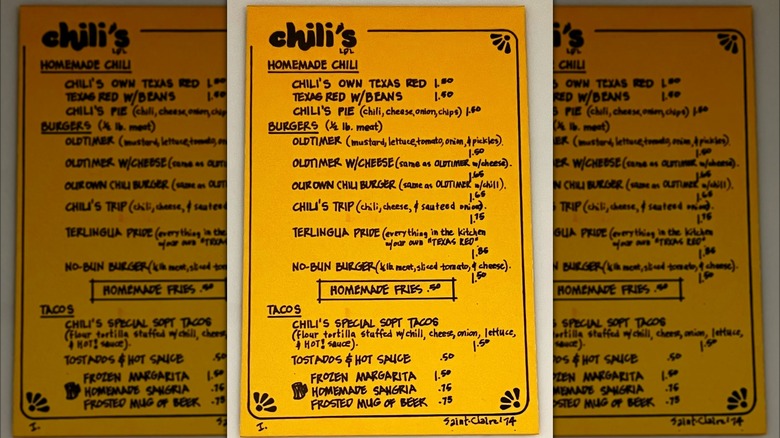 chili's
LPL
HOMEMADE CHILI
CHILI'S OWN TEXAS RED 1.50
TEXAS RED W/BEANS 1.50
CHILI'S PIE (chili, cheese, onion, chips) 1.50
BURGERS (½ lb. meat)
OLDTIMER (mustard, lettuce, tomato, onion, & pickles).
1.50
OLDTIMER W/CHEESE (same as OLDTIMER w/cheese).
1.65
OUR OWN CHILI BURGER (same as OLDTIMER w/chili).
1.65
CHILI'S TRIP (chili, cheese, & sauteed onion).
1.75
TERLINGUA PRIDE (everything in the kitchen
w/our own "TEXAS RED"
1.85
NO-BUN BURGER (½ lb meat, sliced tomato, & cheese).
1.50
HOMEMADE FRIES .50
TACOS
CHILI'S SPECIAL SOFT TACOS
(flour tortilla stuffed w/chili, cheese, onion, lettuce,
& HOT! sauce).
1.50
TOSTADOS & HOT SAUCE .50
FROZEN MARGARITA 1.50
HOMEMADE SANGRIA .75
FROSTED MUG OF BEER .75
I.
Saint-Claire '74